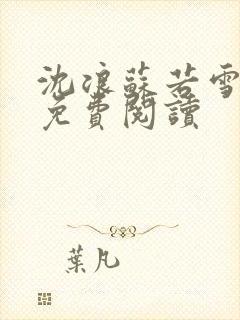 沈浪蘇若雪
免費閱讀
葉凡